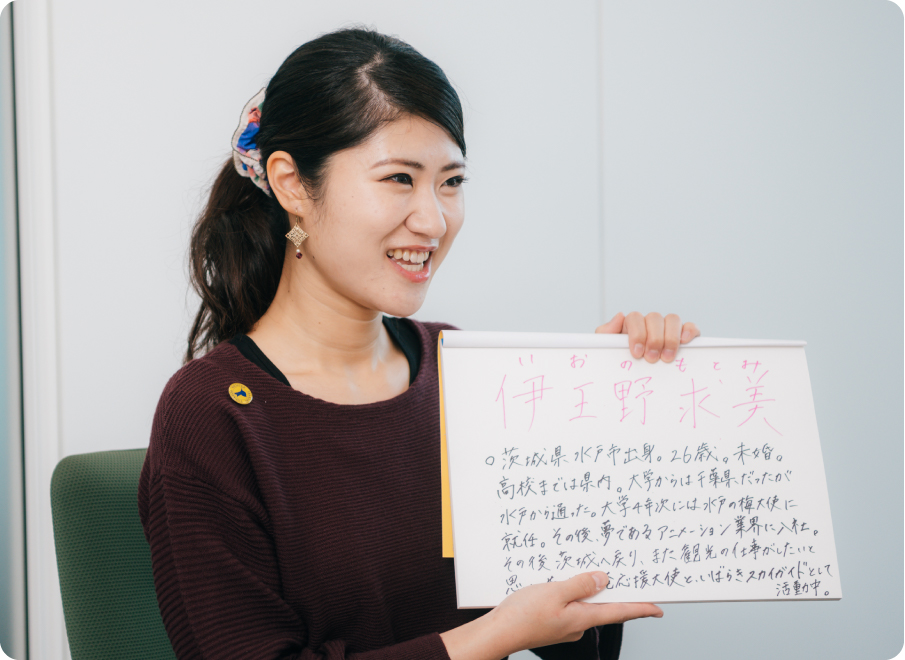 いおのもとみ
伊王野求美
○茨城県水戸市出身。26歳。未婚。
高校までは県内。大学からは千葉県だったが
水戸から通った。大学4年次には水戸の梅大使に
就任。その後、夢であるアニメーション業界に入社。
その後茨城へ戻り、また観光の仕事がしたいと
思 応援大使と、いばらきスカイガイドとして
活動中。